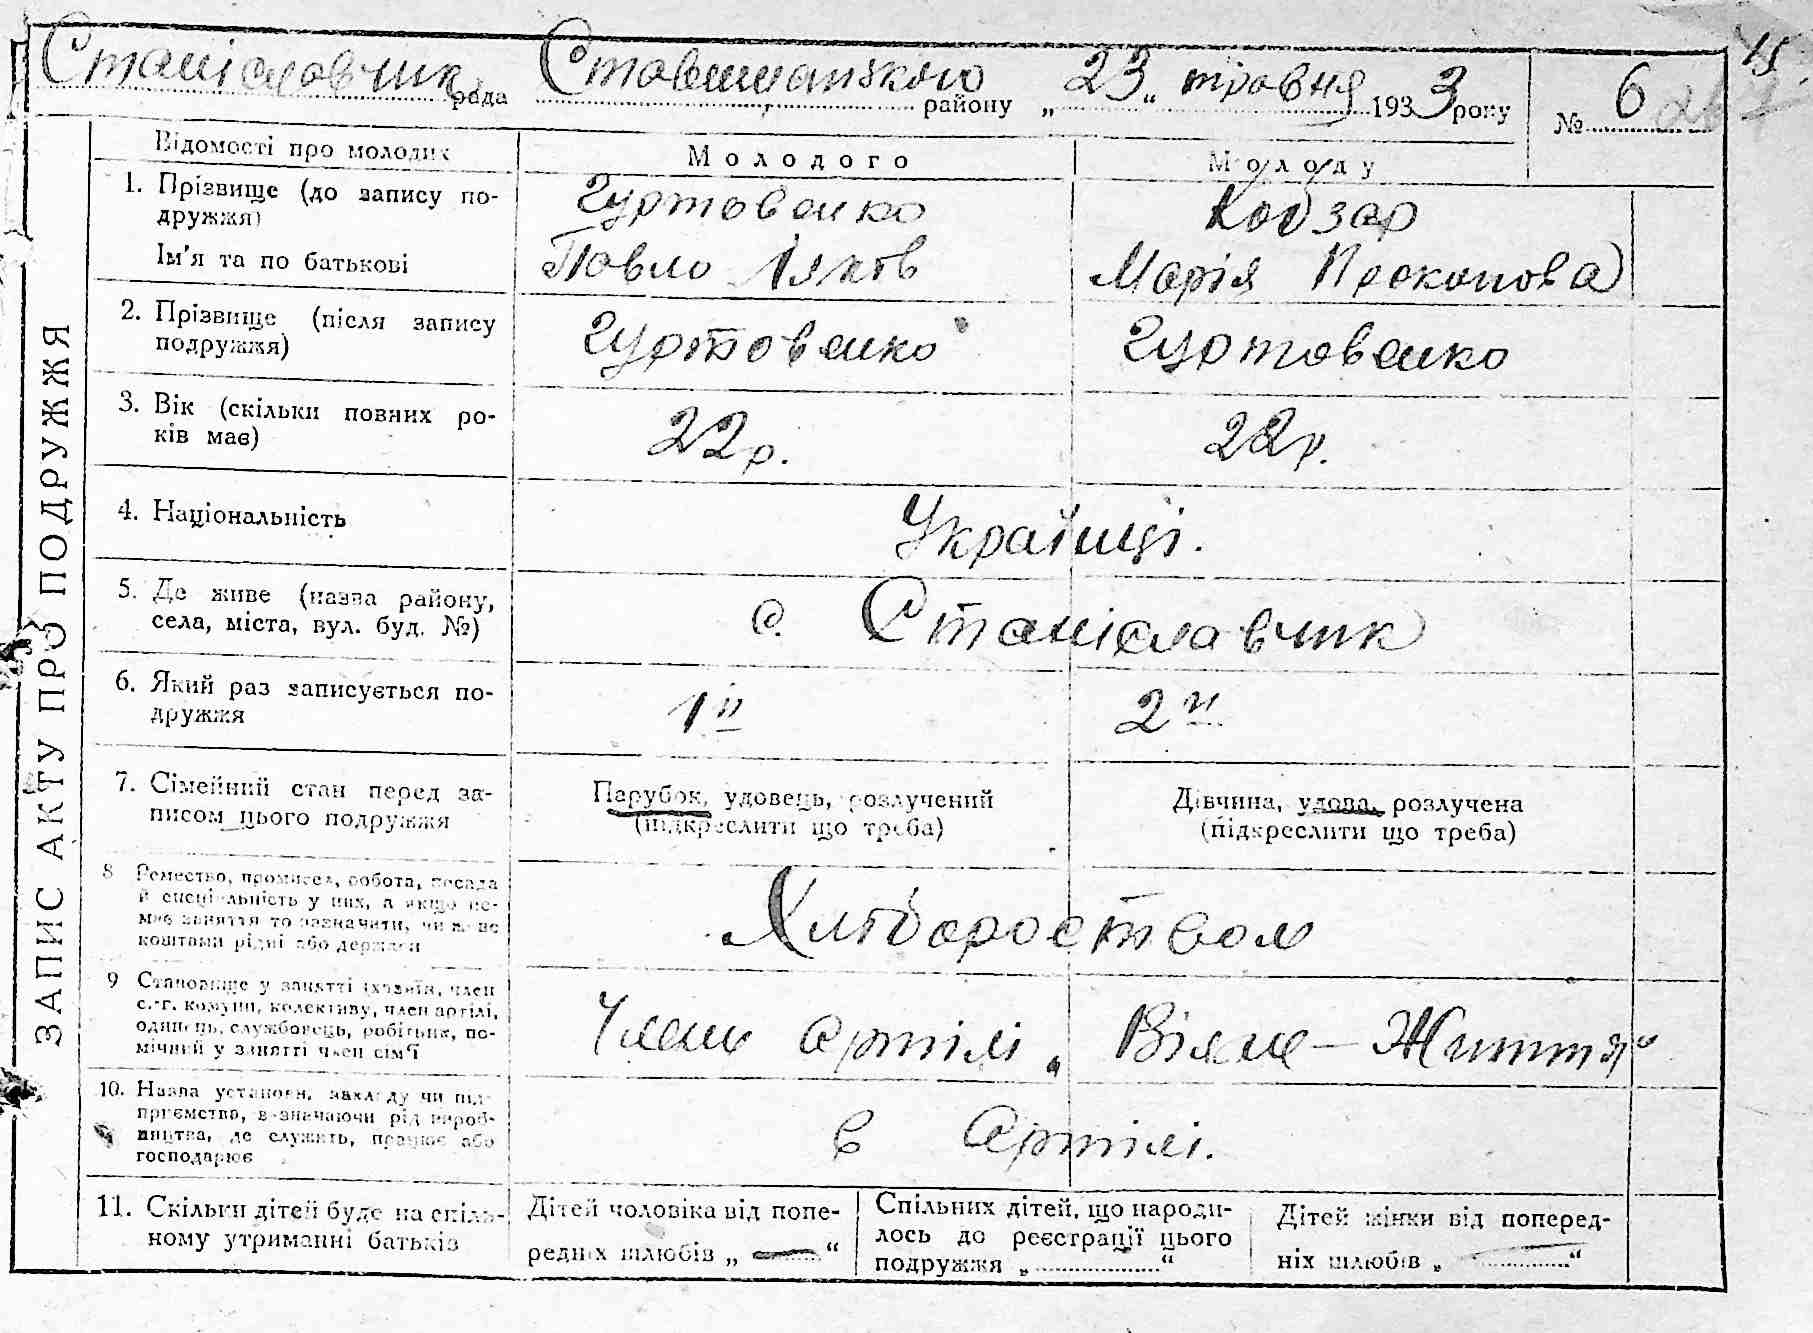 Станіславчик рада Ставищанського району „23“ травня 1933 року № 6
15
ЗАПИС АКТУ ПРО ПОДРУЖЖЯ
Відомості про молодих
Молодого
Молоду
1. Прізвище (до запису по-
дружжя)
Гуртовенко
Кобзар
Ім'я та по батькові
Павло Яков
Марія Прокопова
2. Прізвище (після запису
подружжя)
Гуртовенко
Гуртовенко
3. Вік (скільки повних ро-
ків має)
22 р.
22 р.
4. Національність
Українці.
5. Де живе (назва району,
села, міста, вул. буд. №)
с. Станіславчик
6. Який раз записується по-
дружжя
1й
2й
7. Сімейний стан перед за-
писом цього подружжя
Парубок, удовець, розлучений
(підкреслити що треба)
Дівчина, удова, розлучена
(підкреслити що треба)
8 Ремество, промисел, робота, посада
й спеціяльність у них, а якщо не-
має заняття то зазначити, чи живе
коштами рідні або держави
Хліборобством
9 Становище у занятті (хазяїн, член
с.-г. комуни, колективу, член артілі,
одинець, службовець, робітник, по-
мічний у занятті член сім'ї
Член артілі „Вільне-Життя“
10. Назва установи, закладу чи під-
приємства, визначаючи рід вироб-
ництва, де служить, працює або
господарює
в Артілі.
11. Скільки дітей буде на спіль-
ному утриманні батьків
Дітей чоловіка від попе-
редніх шлюбів „—“
Спільних дітей, що народи-
лось до реєстрації цього
подружжя „ “
Дітей жінки від поперед-
ніх шлюбів „—“